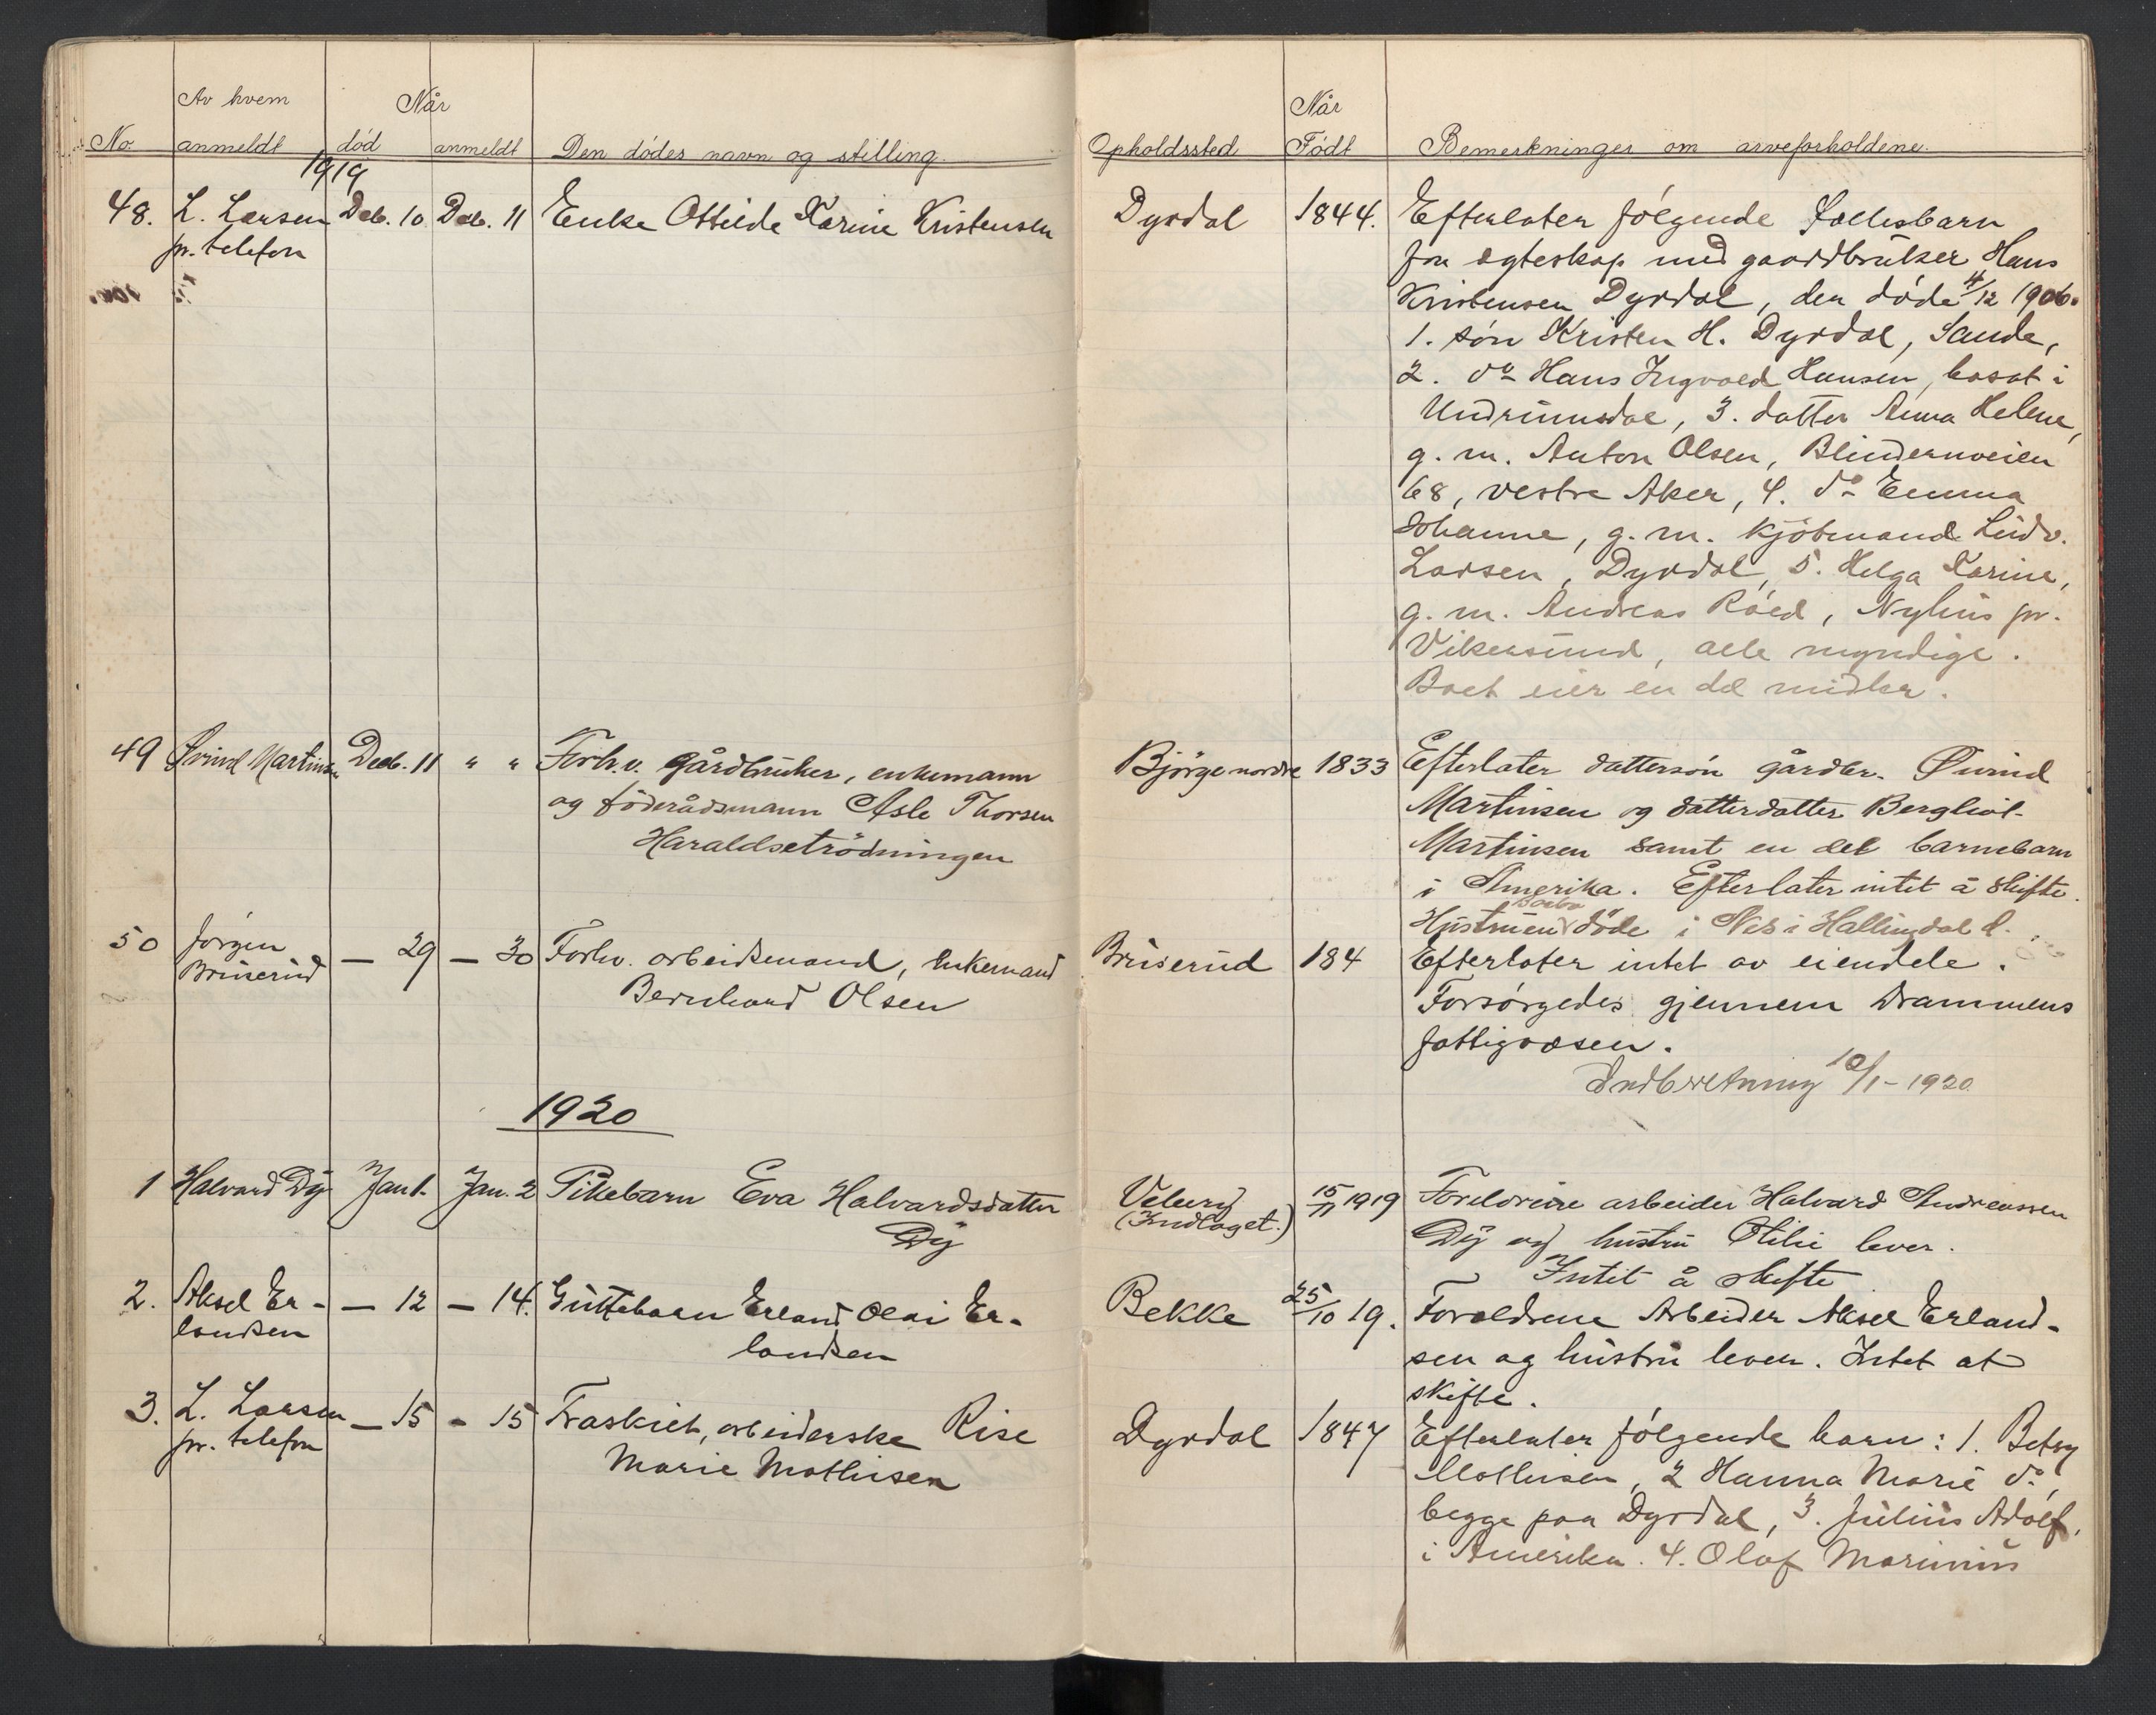 Av hvem Når Når
No. anmeldt död anmeldt Den dödes navn og stilling. Opholdssted Födt Bemerkninger om arveforholdene.
1919
48. L. Larsen Deb. 10 Deb. 11 Enke Ottilde Karine Kristensen Dyrdal 1844. Efterlater følgende Fællesbarn
pr. telefon fra egteskap med gaardbruker Hans
Kristensen Dyrdal, den døde 4/12 1906.
1. søn Kristen H. Dyrdal, Sande,
2. do Hans Ingvald Hansen, bosat i
Undrumsdal, 3. datter Anna Helene,
g. m. Anton Olsen, Blindernveien
68, vestre Aker, 4. do Emma
Johanne, g. m. kjøbmand Ludv.
Larsen, Dyrdal, 5. Helga Karine,
g. m. Andreas Røed, Nyhus pr.
Vikersund, alle myndige.
Boet eier en del midler.
49 Øvind Martinsen Decb. 11 " " Forh.v. gårdbruker, enkemann Bjørge nordre 1833 Efterlater dattersøn gårdbr. Øvind
og föderådsmann Asle Thorsen Martinsen og datterdatter Bergliot
Haraldsetrödningen Martinsen samt en del barnebarn
i Amerika. Efterlater intet å skifte.
Hustruen döde i Nes i Hallingdal
50 Jørgen Bruserud — 29 — 30 Forhv. arbeidsmand, enkemand Bruserud 184 Efterlater intet av eiendele.
Bernhard Olsen Forsørgedes gjennem Drammens
fattigvæsen.
Indberetning 10/1-1920
1920
1 Halvard Dÿ Jan 1. Jan. 2 Pikebarn Eva Halvardsdatter Veberg 15/11 1919 Foreldrene arbeider Halvard Andreassen
Dÿ (Indlaget.) Dÿ og hustru Otilie lever.
Intit å skifte
2. Aksel Er- — 12 — 14. Guttebarn Erland Olai Er- Bekke 25/10 19. Forældrene Arbeider Aksel Erland-
landsen landsen sen og hustru lever. Intet at
skifte.
3. L. Larsen — 15 - 15 Fraskilt, arbeiderske Rise Dyrdal 1847 Efterlater følgende barn: 1. Betsy
pr. telefon Marie Mathisen Mathisen, 2 Hanna Marie do,
begge paa Dyrdal, 3. Julius Adolf,
i Amerika. 4. Olaf Marinius